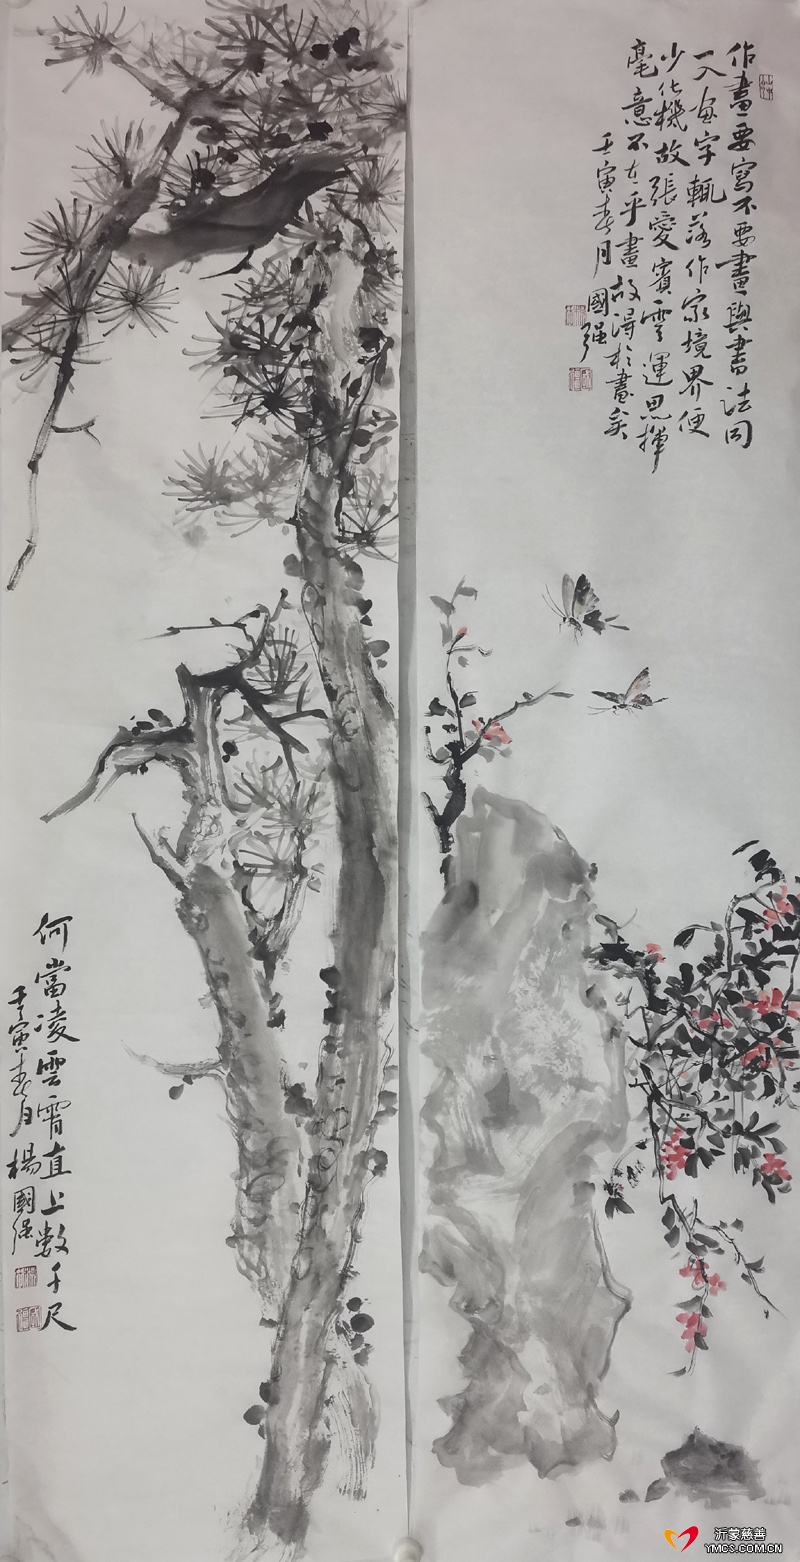 作畫要寫不要畫與書法同
一入畫字輒落作家境界便
少化機故張愛賓雲運思揮
毫意不在乎畫故得於畫矣
壬寅春月國強
何當凌雲霄直上數千尺
壬寅春月楊國強
沂蒙慈善
YMCS.COM.CN